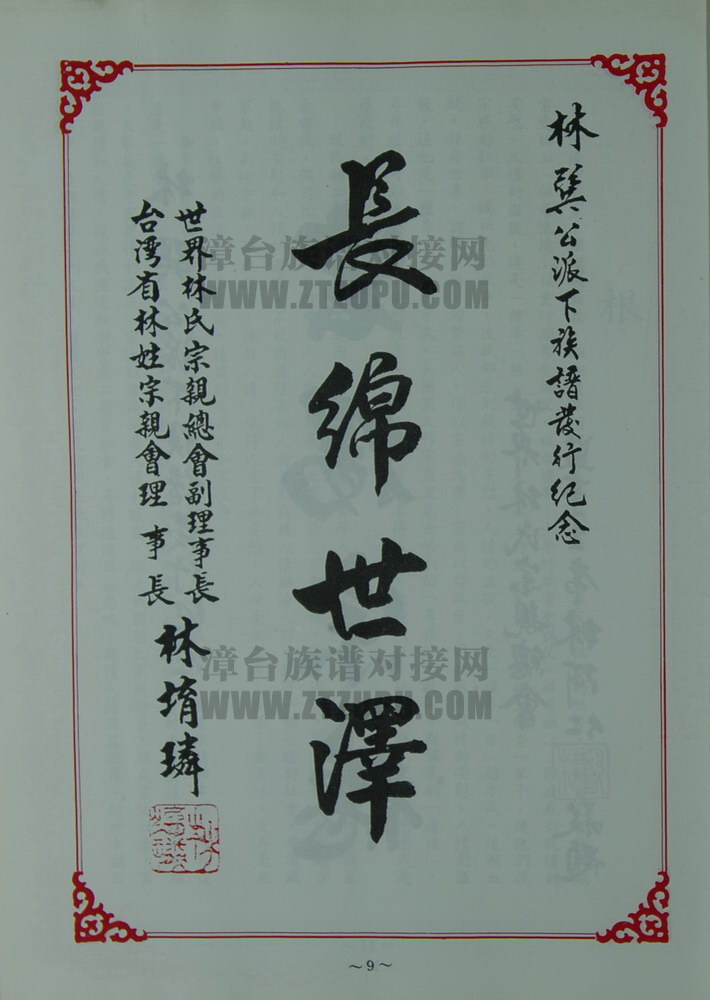 林巽公派下族譜發行纪念
長綿世澤
世界林氏宗親總會副理事長
台湾省林姓宗親會理事長
林堉璘
漳台族谱对接网
WWW.ZTZUPU.COM
漳台族谱对接网
WWW.ZTZUPU.COM
~9~